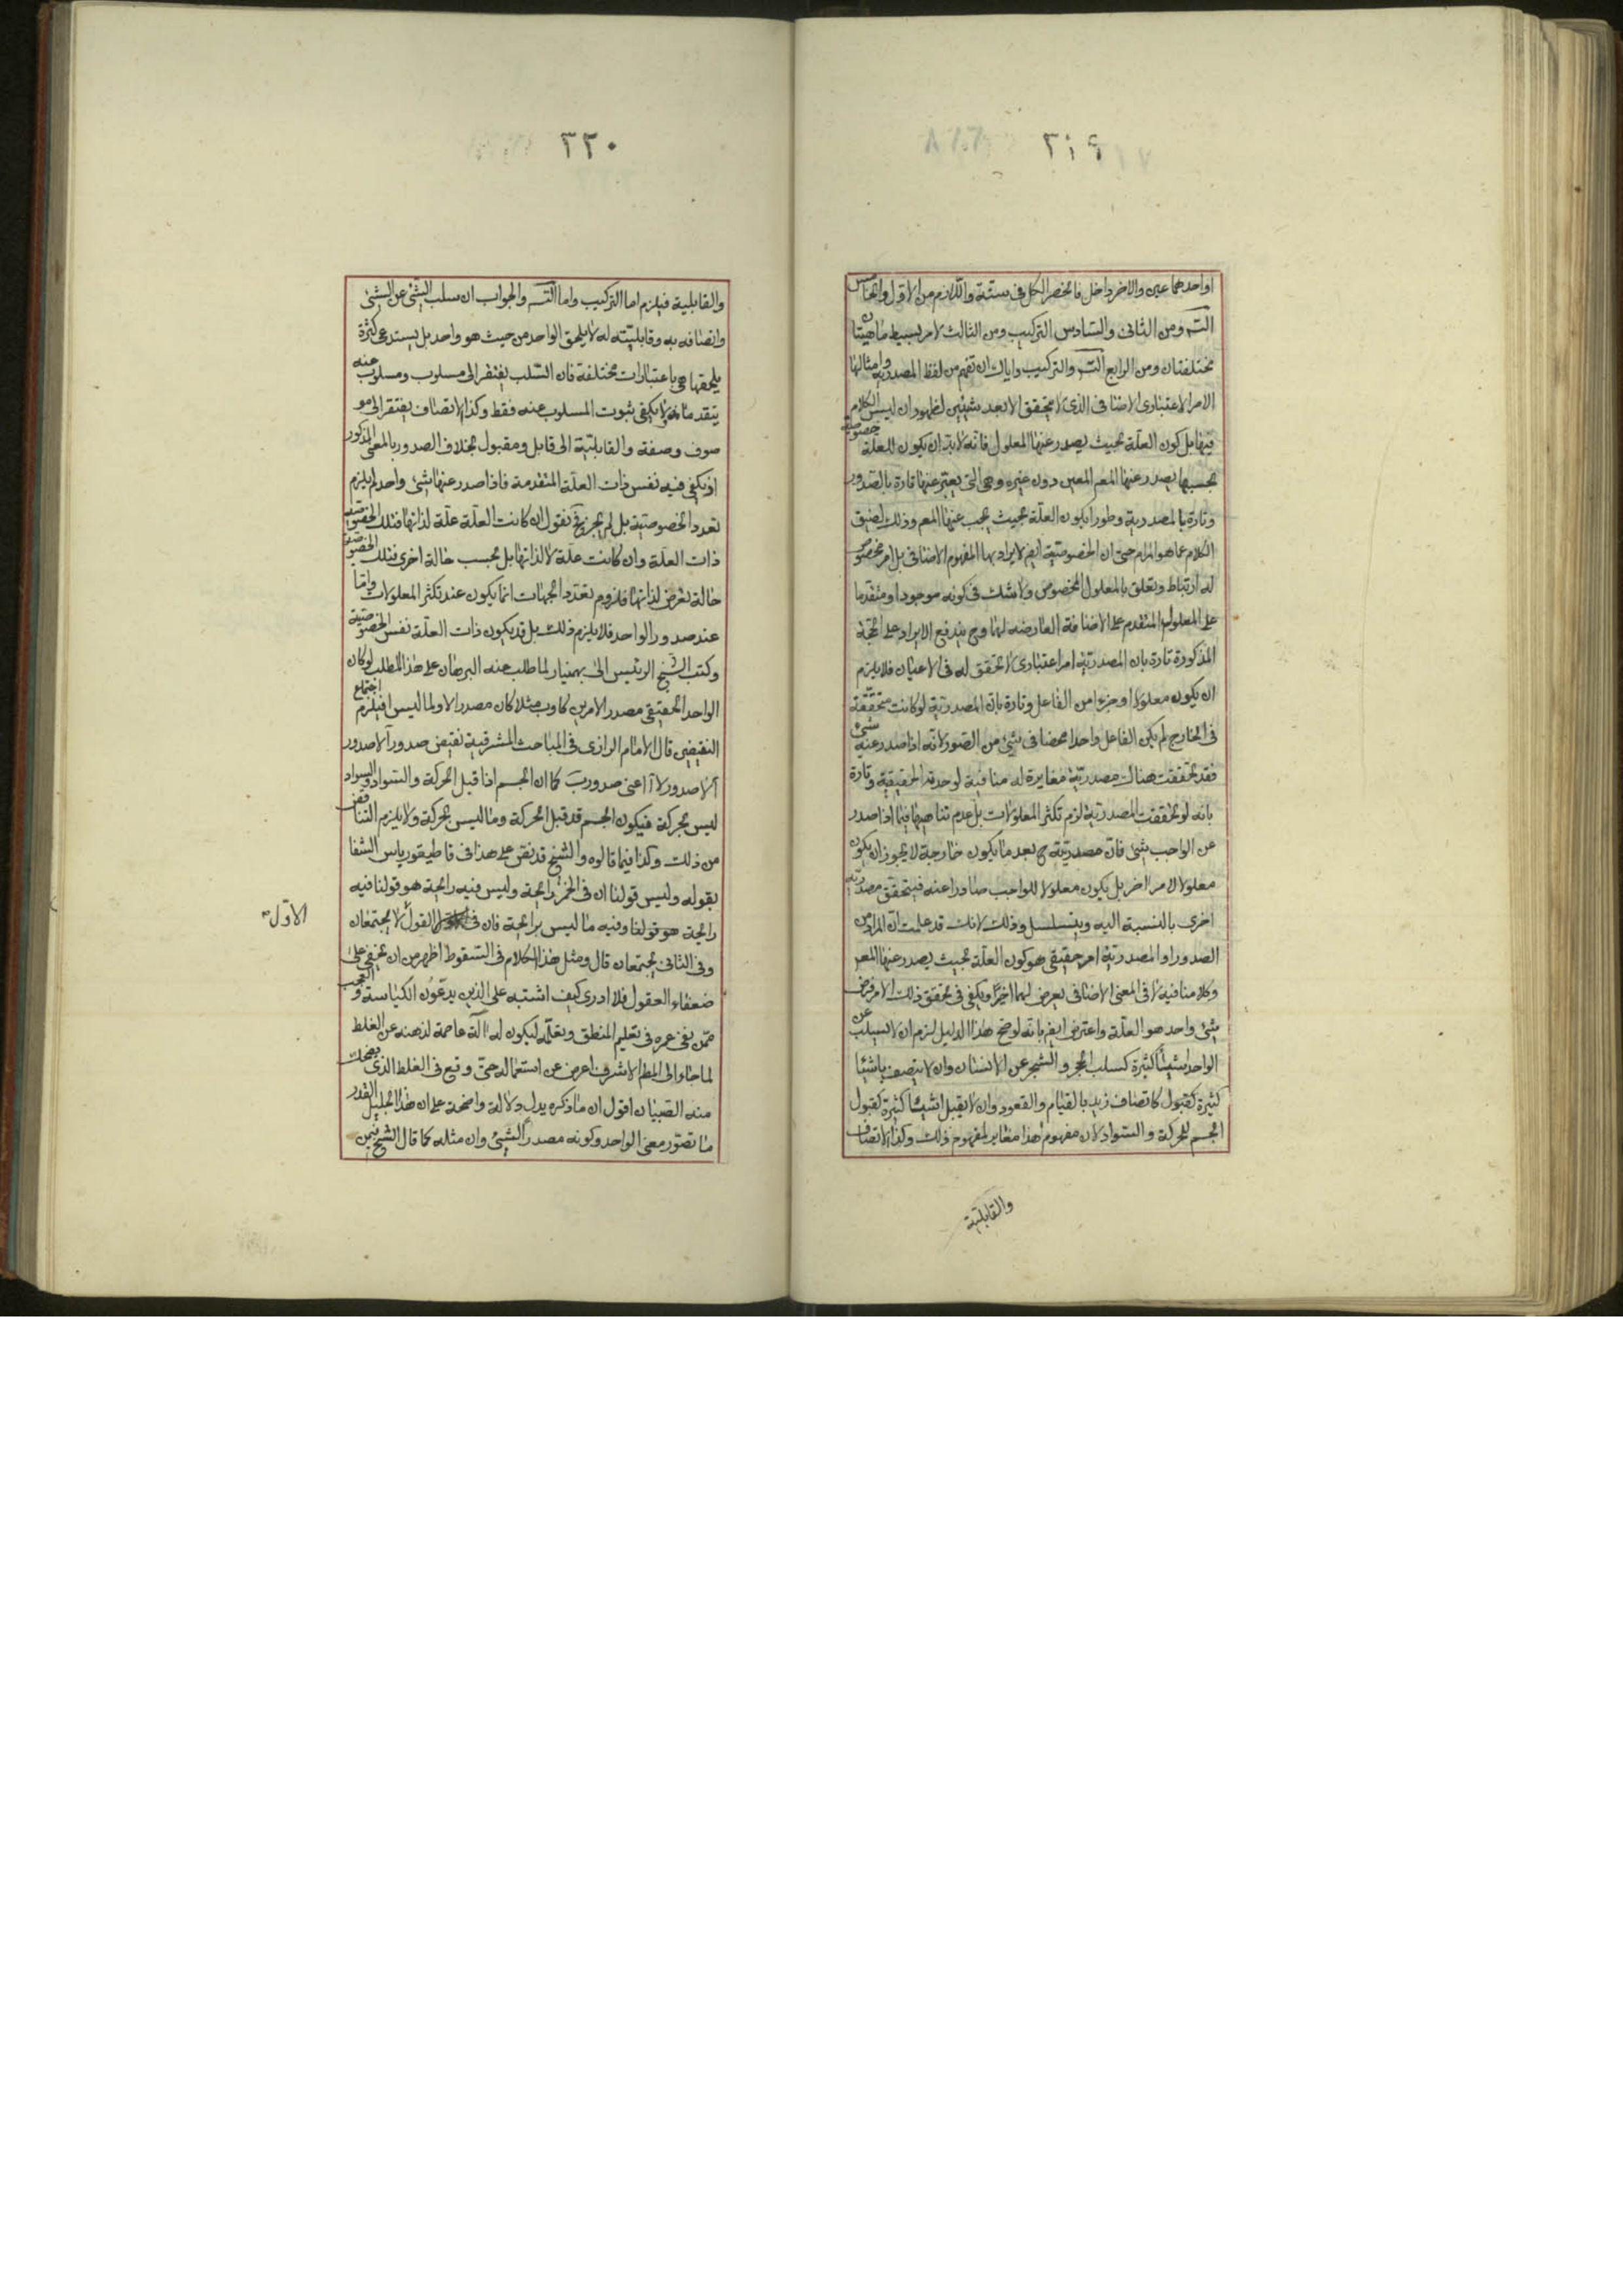 ٢١٩
او احدهما عين والاخر داخل فانحصر الكل فى ستة واللازم من الاول والخامس
التسـ ومن الثانى والسادس التركيب ومن الثالث لامر بسيط ماهيتان
مختلفتان ومن الرابع التسـ والتركيب واياك ان تفهم من لفظ المصدرية وامثالها
الامر الاعتبارى الاضافى الذى لا يتحقق الا بعد شيئين لظهور ان ليس الكلام
فيها بل كون العلّة بحيث يصدر عنها المعلول فانّه لابد ان يكون للعلة خصوصية
بحسبها يصدر عنها المعم المعين دون غيره وهى التى يعبّر عنها تارة بالصّدور
وتارة بالمصدرية وطورا بكون العلّة بحيث يجب عنها المعم وذلك لضيق
الكلام عما هو المرام حتى ان الخصوصيّة ايضا لا يراد بها المفهوم الاضافى بل امر مخصوص
له ارتباط وتعلق بالمعلول المخصوص ولا شك فى كونه موجودا ومتقدما
على المعلول المتقدم على الاضافة العارضه لها وح يندفع الايراد على الحجة
المذكورة تارة بان المصدريّة امر اعتبارى لا تحقق له فى الاعيان فلا يلزم
ان يكون معلولا او جزءا من الفاعل وتارة بان المصدريّة لو كانت متحققة
فى الخارج لم يكن الفاعل واحدا محضا فى شئ من الصّور لانّه اذا صدر عنه شئ
فقد تحققت هناك مصدريّة مغايرة له منافية لوحدته الحقيقية وتارة
بانه لو تحققت المصدريّة لزم تكثر المعلولات بل عدم تناهيها فيما اذا صدر
عن الواجب شئ فان مصدريّته ح بعد ما يكون خارجة لا يجوز ان يكون
معلولا لامر اخر بل يكون معلولا للواجب صادرا عنه فيتحقق مصدريّة
اخرى بالنسبة اليه ويتسلسل وذلك لانك قد علمت انّ المراد من
الصدور او المصدريّة امر حقيقى هو كون العلّة بحيث يصدر عنها المعم
وكلامنا فيه لا فى المعنى الاضافى يعرض لهما اخيرًا ويكفى فى تحقق ذلك الامر فرض
شئ واحد هو العلّة واعترض ايضا بانّه لو صح هذا الدليل لزم ان لا يسلب عن
الواحد اشياء كثيرة كسلب الحجر والشجر عن الانسان وان لا يتصف باشيا
كثيرة كقبول كاتصاف زيد بالقيام والقعود وان لا يقبل اشياء كثيرة كقبول
الجسم للحركة والسّواد لان مفهوم هذا مغاير لمفهوم ذلك وكذا الاتصاف
والقابليّة
٣٢٠
والقابلية فيلزم اما التركيب واما التسـ والجواب ان سلب الشئ عن الشئ
واتصافه به وقابليّته له لا يلحق الواحد من حيث هو واحد بل يستدعى كثرة
يلحقها هى باعتبارات مختلفة فان السّلب يفتقر الى مسلوب ومسلوب عنه
يتقدمانه ولا يكفى ثبوت المسلوب عنه فقط وكذا الاتصاف يفتقر الى مو
صوف وصفة والقابليّة الى قابل ومقبول بخلاف الصدور بالمعنى المذكور
اذ يكفى فيه نفس ذات العلّة المتقدمة فاذا صدر عنها شئ واحد لم يلزم
تعدد الخصوصيّة بل لم يجز فح نقول ان كانت العلّة علّة لذاتها فتلك الخصوصية
ذات العلّة وان كانت علّة لا لذاتها بل بحسب حالة اخرى فتلك الخصوصية
حالة تعرض لذاتها فلزوم تعدد الجهات انما يكون عند تكثر المعلولات واما
عند صدور الواحد فلا يلزم ذلك بل قد يكون ذات العلّة نفس الخصوصيّة
وكتب الشيخ الرئيس الى بهمنيار لما طلب عنه البرهان على هذا المطلب لو كان
الواحد الحقيقى مصدر الامرين كا وب مثلا كان مصدرا لا ولما ليس ا فيلزم اجتماع
النقيضين قال الامام الرازى فى المباحث المشرقية نقيض صدور آ لاصدور
آ لا صدور لا آ اعنى صدور ب كما ان الجسم اذا قبل الحركة والسّواد والسواد
ليس بحركة فيكون الجسم قد قبل الحركة وما ليس بحركة ولا يلزم التناقض
من ذلك وكذا فيما قالوه والشيخ قد نص على هذا فى قاطيغورياس الشفا
بقوله وليس قولنا ان فى الخمر رائحة وليس فيه رائحة هو قولنا فيه
رائحة هو قولنا وفيه ما ليس برائحة فان فى القول لا يجتمعان
وفى الثانى يجتمعان قال ومثل هذا الكلام فى السّقوط اظهر من ان يخفى على
ضعفاء العقول فلا ادرى كيف اشتبه على الذين يدّعون الكياسة والعجب
ممّن يفنى عمره فى تعليم المنطق وتعلّمه ليكون له آلة عاصمة لذهنه عن الغلط
لما جاء الى المطم الاشرف اعرض عن استعماله حتى وقع فى الغلط الذى يضحك
منه الصّبيان اقول ان ما ذكره يدل دلالة واضحة على ان هذا الجليل القدر
ما تصوّر معنى الواحد وكونه مصدرا لشئ وان مثله كما قال الشيخ فيمن
الاوّل